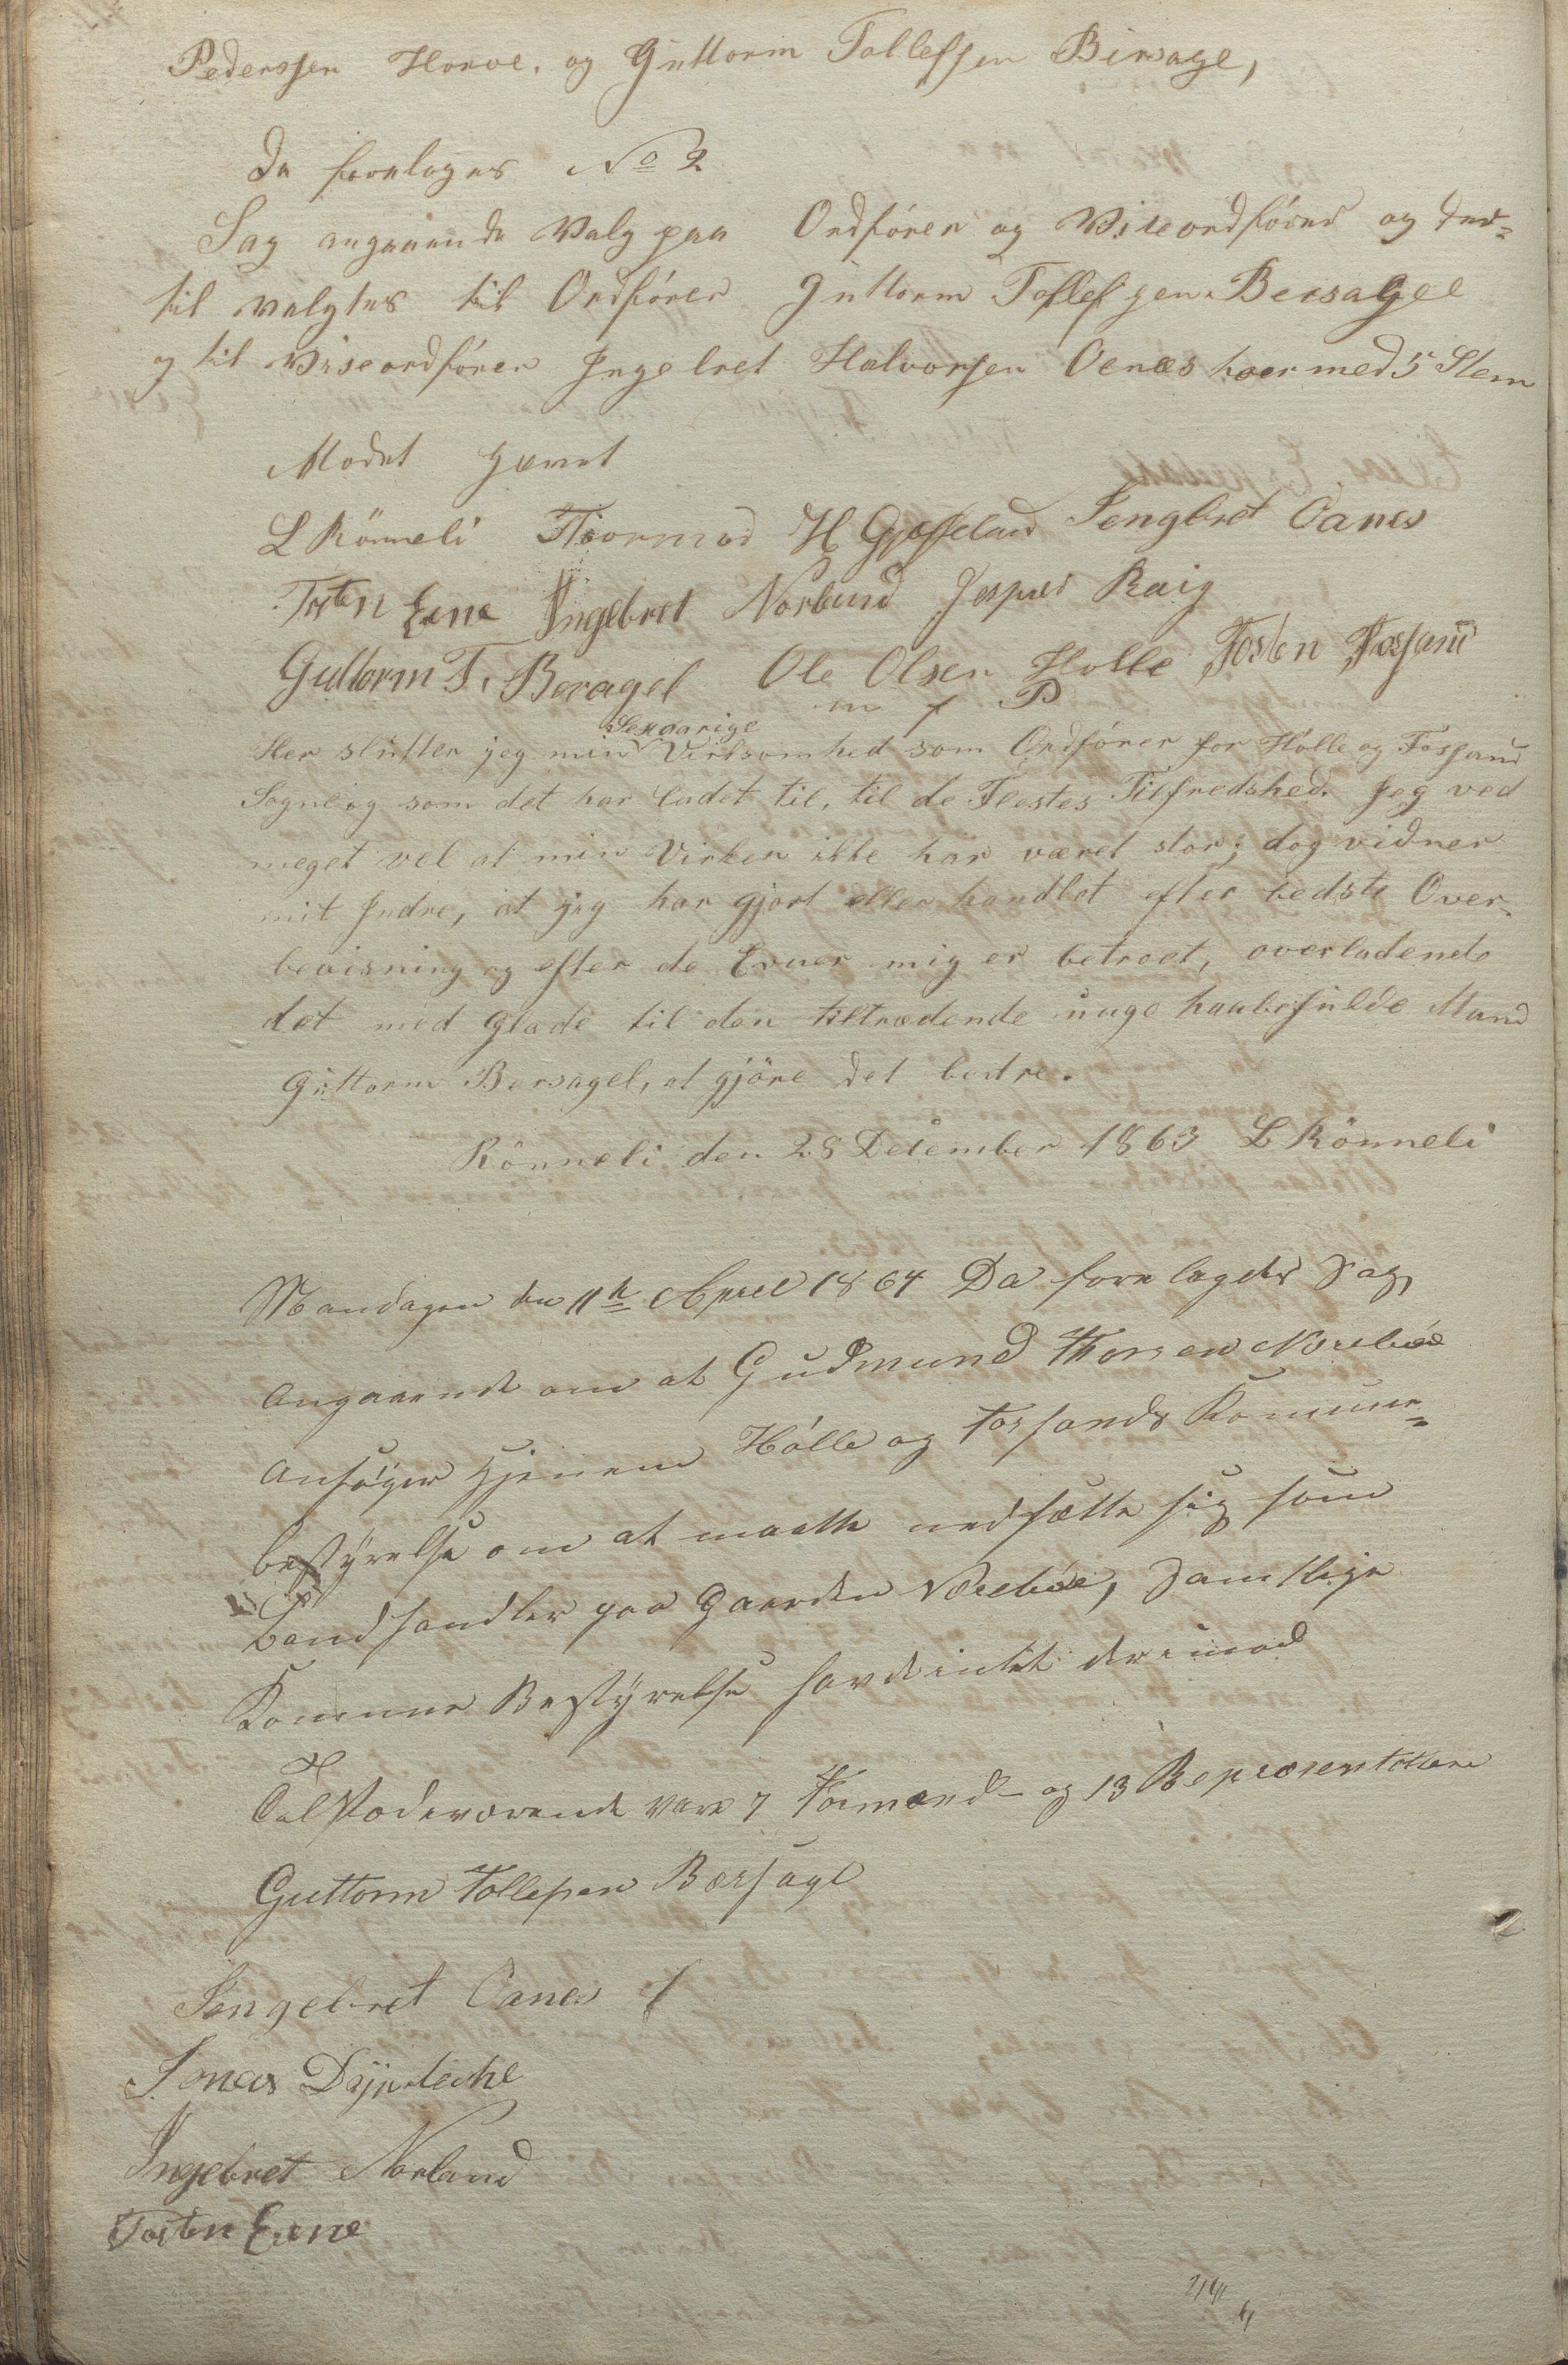 Pederssen Horve, og Guttorm Tollefsen Birsage,
Da foretoges No 2
Sag angaaende Valg paa Ordfører og Viseordfører og der-
til valgtes til Ordfører Guttorm Tollefsen Bersagel
og til Viseordfører Ingebret Halvorsen Oenæs hver med 5 Stem
Mødet hævet
L Rönneli Thormod H Gjæsseland Iengebret Oanes
Tosten Eene Ingebret Norland Jesper Raig
Guttorm T. Beragel Ole Olsen Holle Tosten Fossand
m f P
Sexaarige
Her slutter jeg min Virksomhed som Ordfører for Hölle og Fossand
Sogne og som det har ladet til, til de Flestes Tilfredshed. Jeg ved
meget vel at min Virken ikke har været stor; dog vidner
mit Indre, at jeg har gjort eller handlet efter bedste Over-
bevisning og efter de Evner mig er betroet, overladende
det med Glæde til den tiltrædende unge haabefulde Mand
Guttorm Bersagel, at gjöre det bedre.
Rönneli den 28 December 1863 L Rönneli
Mandagen den 11te April 1864 Da foretagdes Sag
angaaende om at Gudmund Thorsen Nørebøe
ansøger Gjenem Hölle og Fossands Komune-
bestyrelse om at maatte nedsætte sig som
Landhandler paa Gaarden Nørebøe, Samtlige
Komune Bestyrelse havde intet derimod
Tilstedeværende vare 7 Formænd og 13 Repræsentattere
Guttorm Tollefsen Bersagel
Iengebret Oanes
Jonas Døjpeleche
Ingebret Norland
Tosten Eene